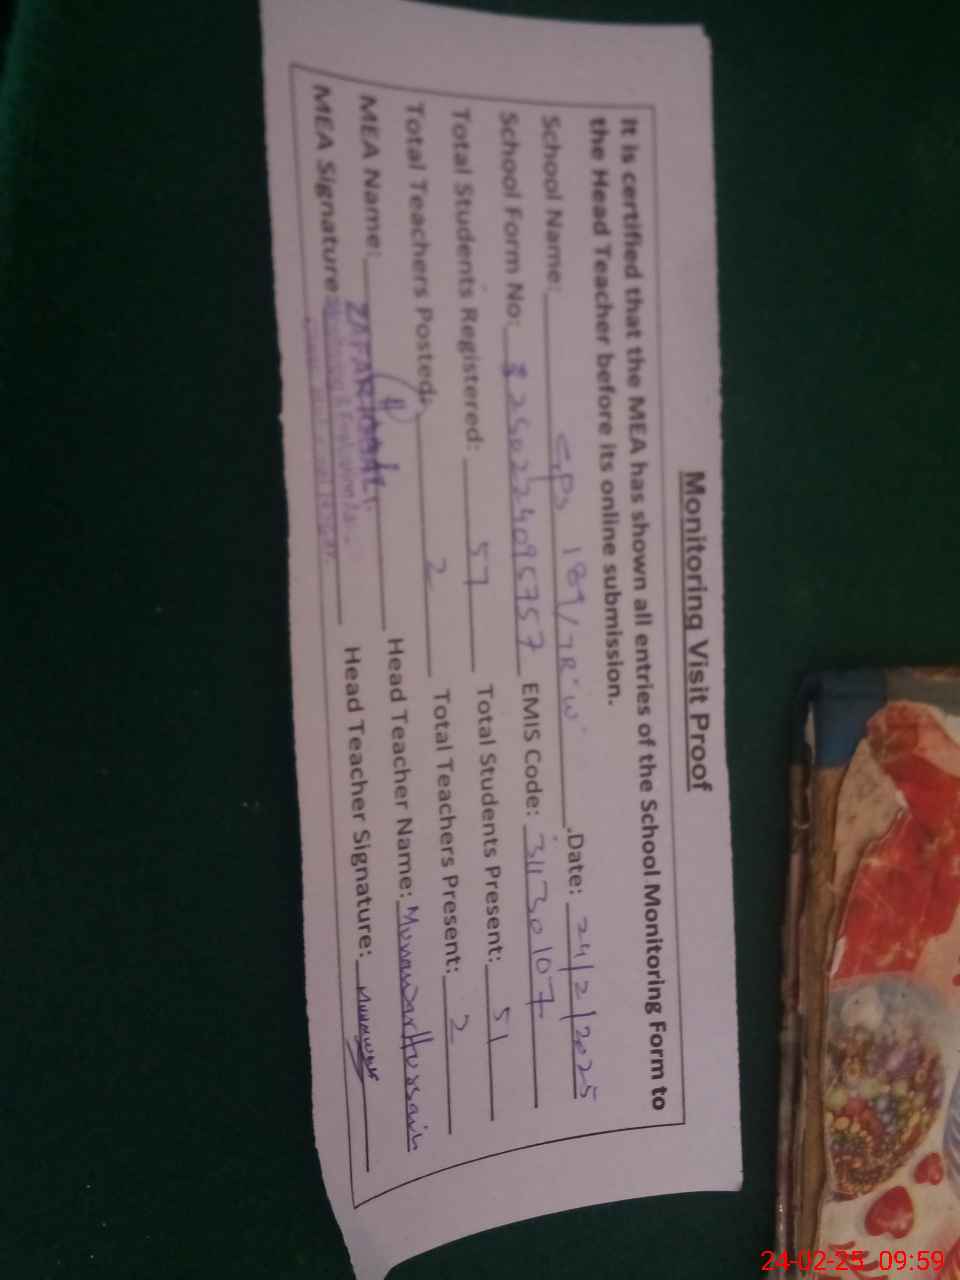 Monitoring Visit Proof
It is certified that the MEA has shown all entries of the School Monitoring Form to
the Head Teacher before its online submission.
School Name: GPS 189/7R'W .Date: 24/2/2025
School Form No: 2250224095757 EMIS Code: 31130107
Total Students Registered: 57 Total Students Present: 51
Total Teachers Posted: 2 Total Teachers Present: 2
MEA Name: ZAFAR IQBAL Head Teacher Name: Munawar Hussain
MEA Signature: Head Teacher Signature: Munawar
24-02-25 09:59